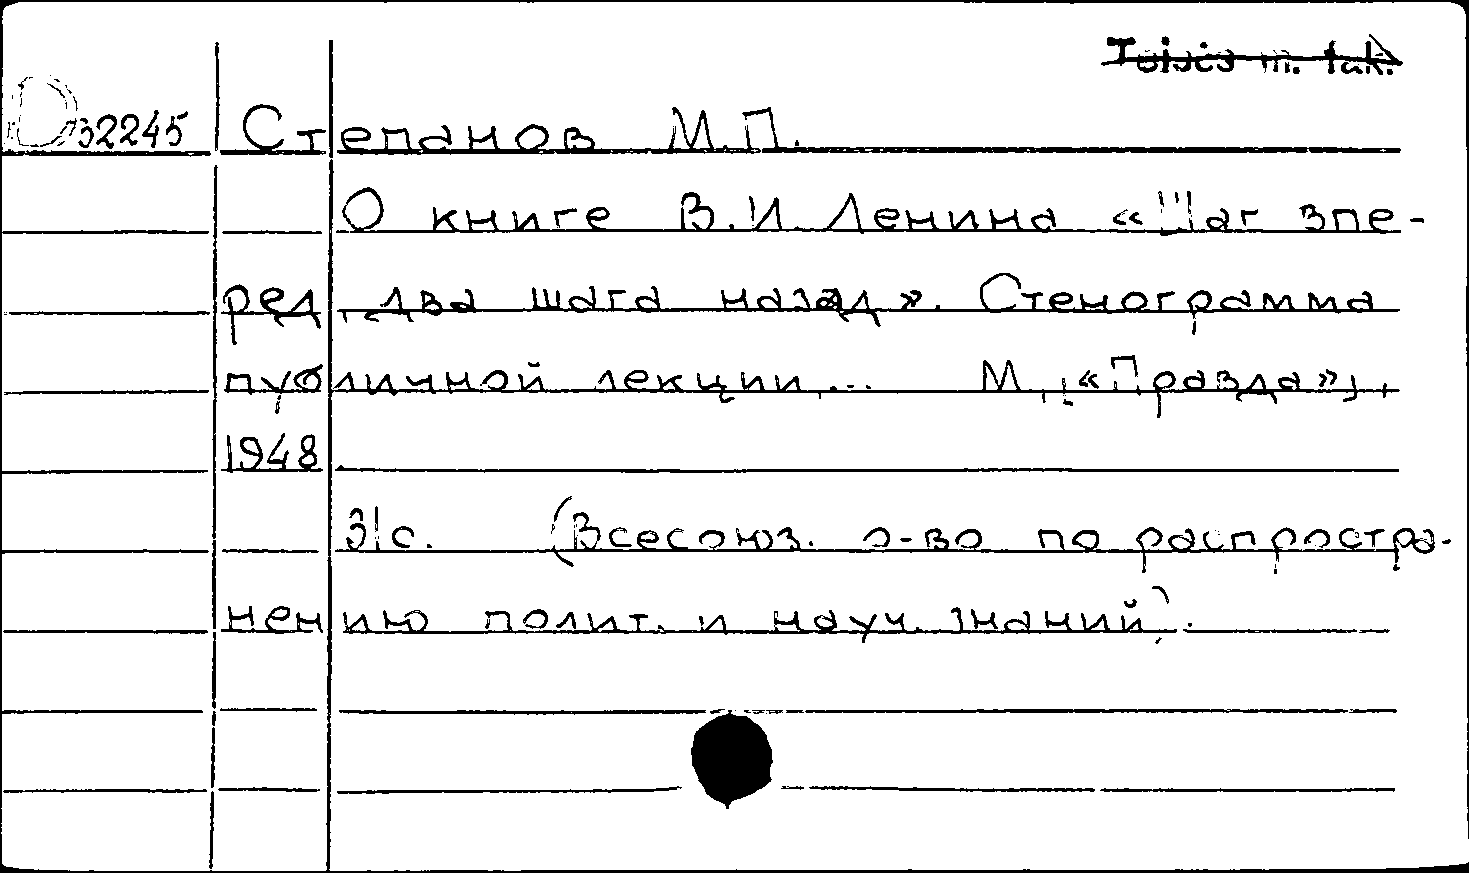 D 32245 Степанов М.П.
О книге В.И. Ленина «Шаг впе-
ред, два шага назад». Стенограмма
публичной лекции... М., [«Правда»],
1948.
31с. (Всесоюз. о-во по распростра-
нению полит. и науч. знаний).